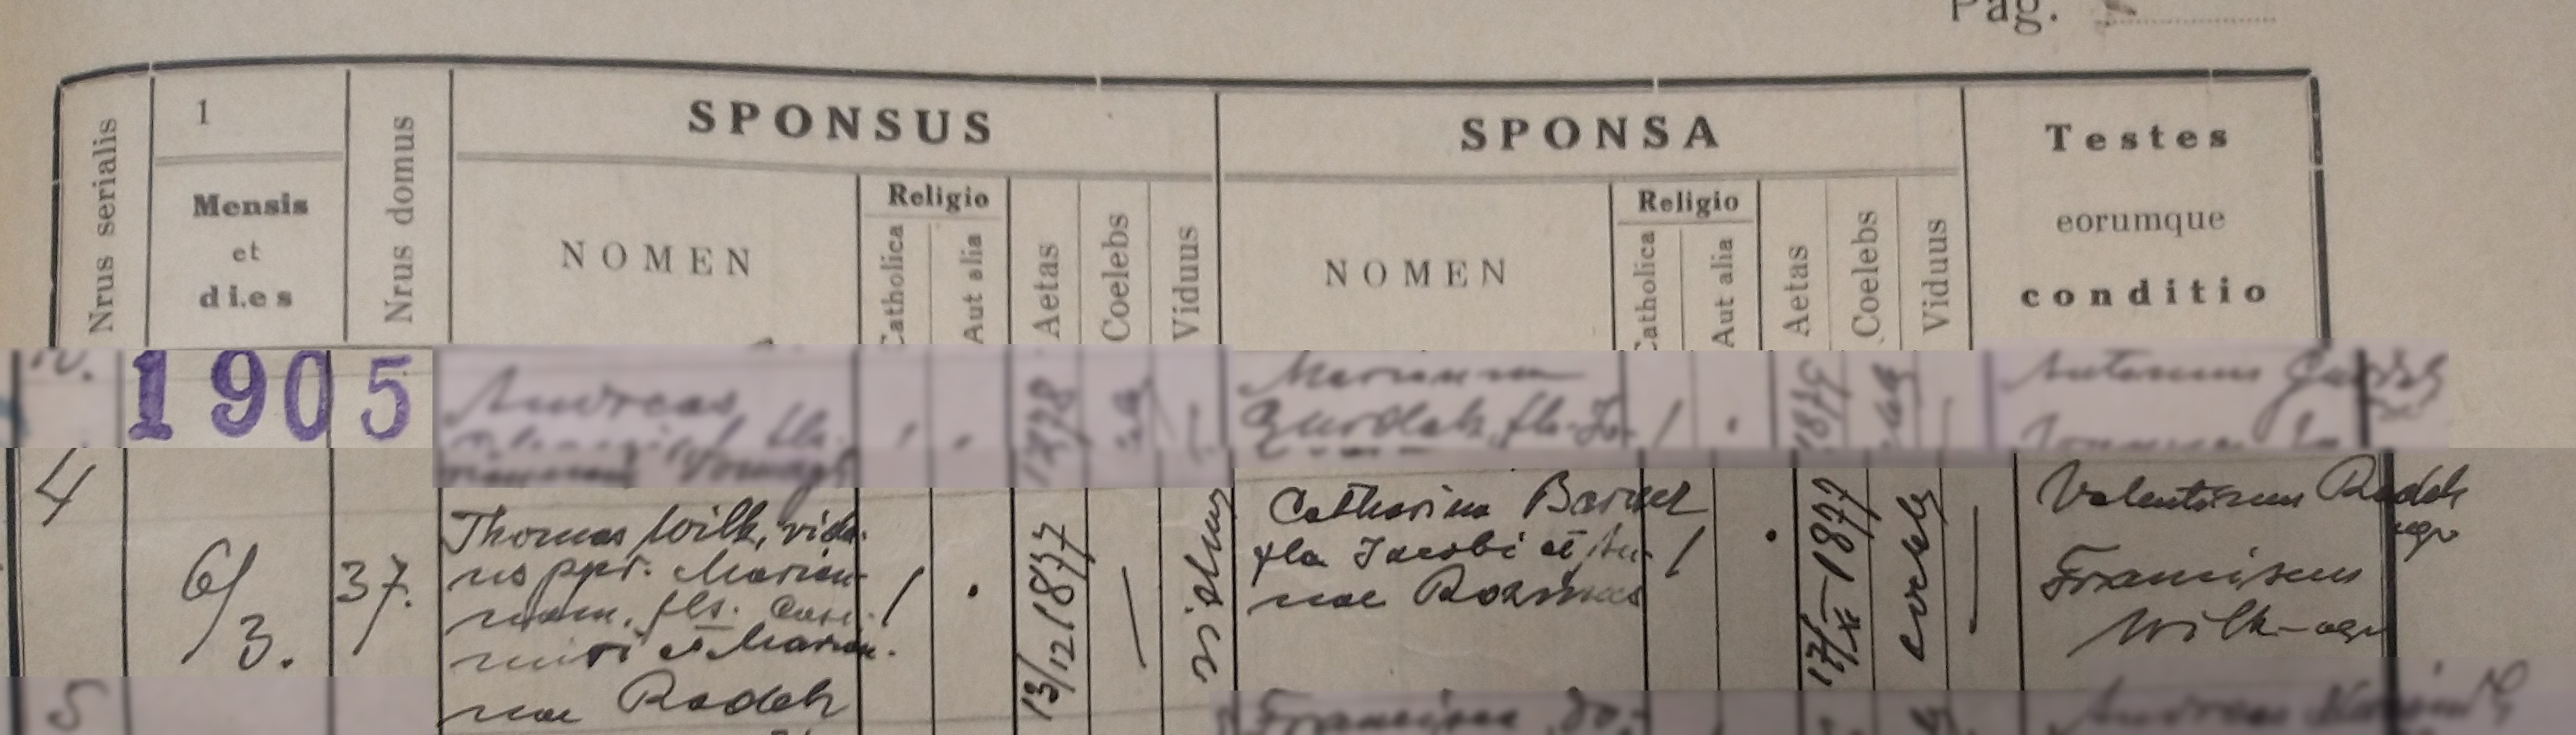 Pag.
Nrus serialis
1
Mensis
et
dies
Nrus domus
SPONSUS
NOMEN
Religio
Catholica
Aut alia
Aetas
Coelebs
Viduus
SPONSA
NOMEN
Religio
Catholica
Aut alia
Aetas
Coelebs
Viduus
Testes
eorumque
conditio
1905
Andreas
1878
Mariannam
Gurdak, fla. Jo-
1879
Antonius
4
6/3.
37.
Thomas Wilk, vidu-
us ppr. Marian-
nam, fls. Casi-
miri et Marian-
nae Radek
/
.
13/12 1837
viduus
Catharina
fla Jacobi et An-
nae
/
.
17/XI 1877
coelebs
Valentinus Radek
agr
Franciscus
Wilk - agr
5
Andreas